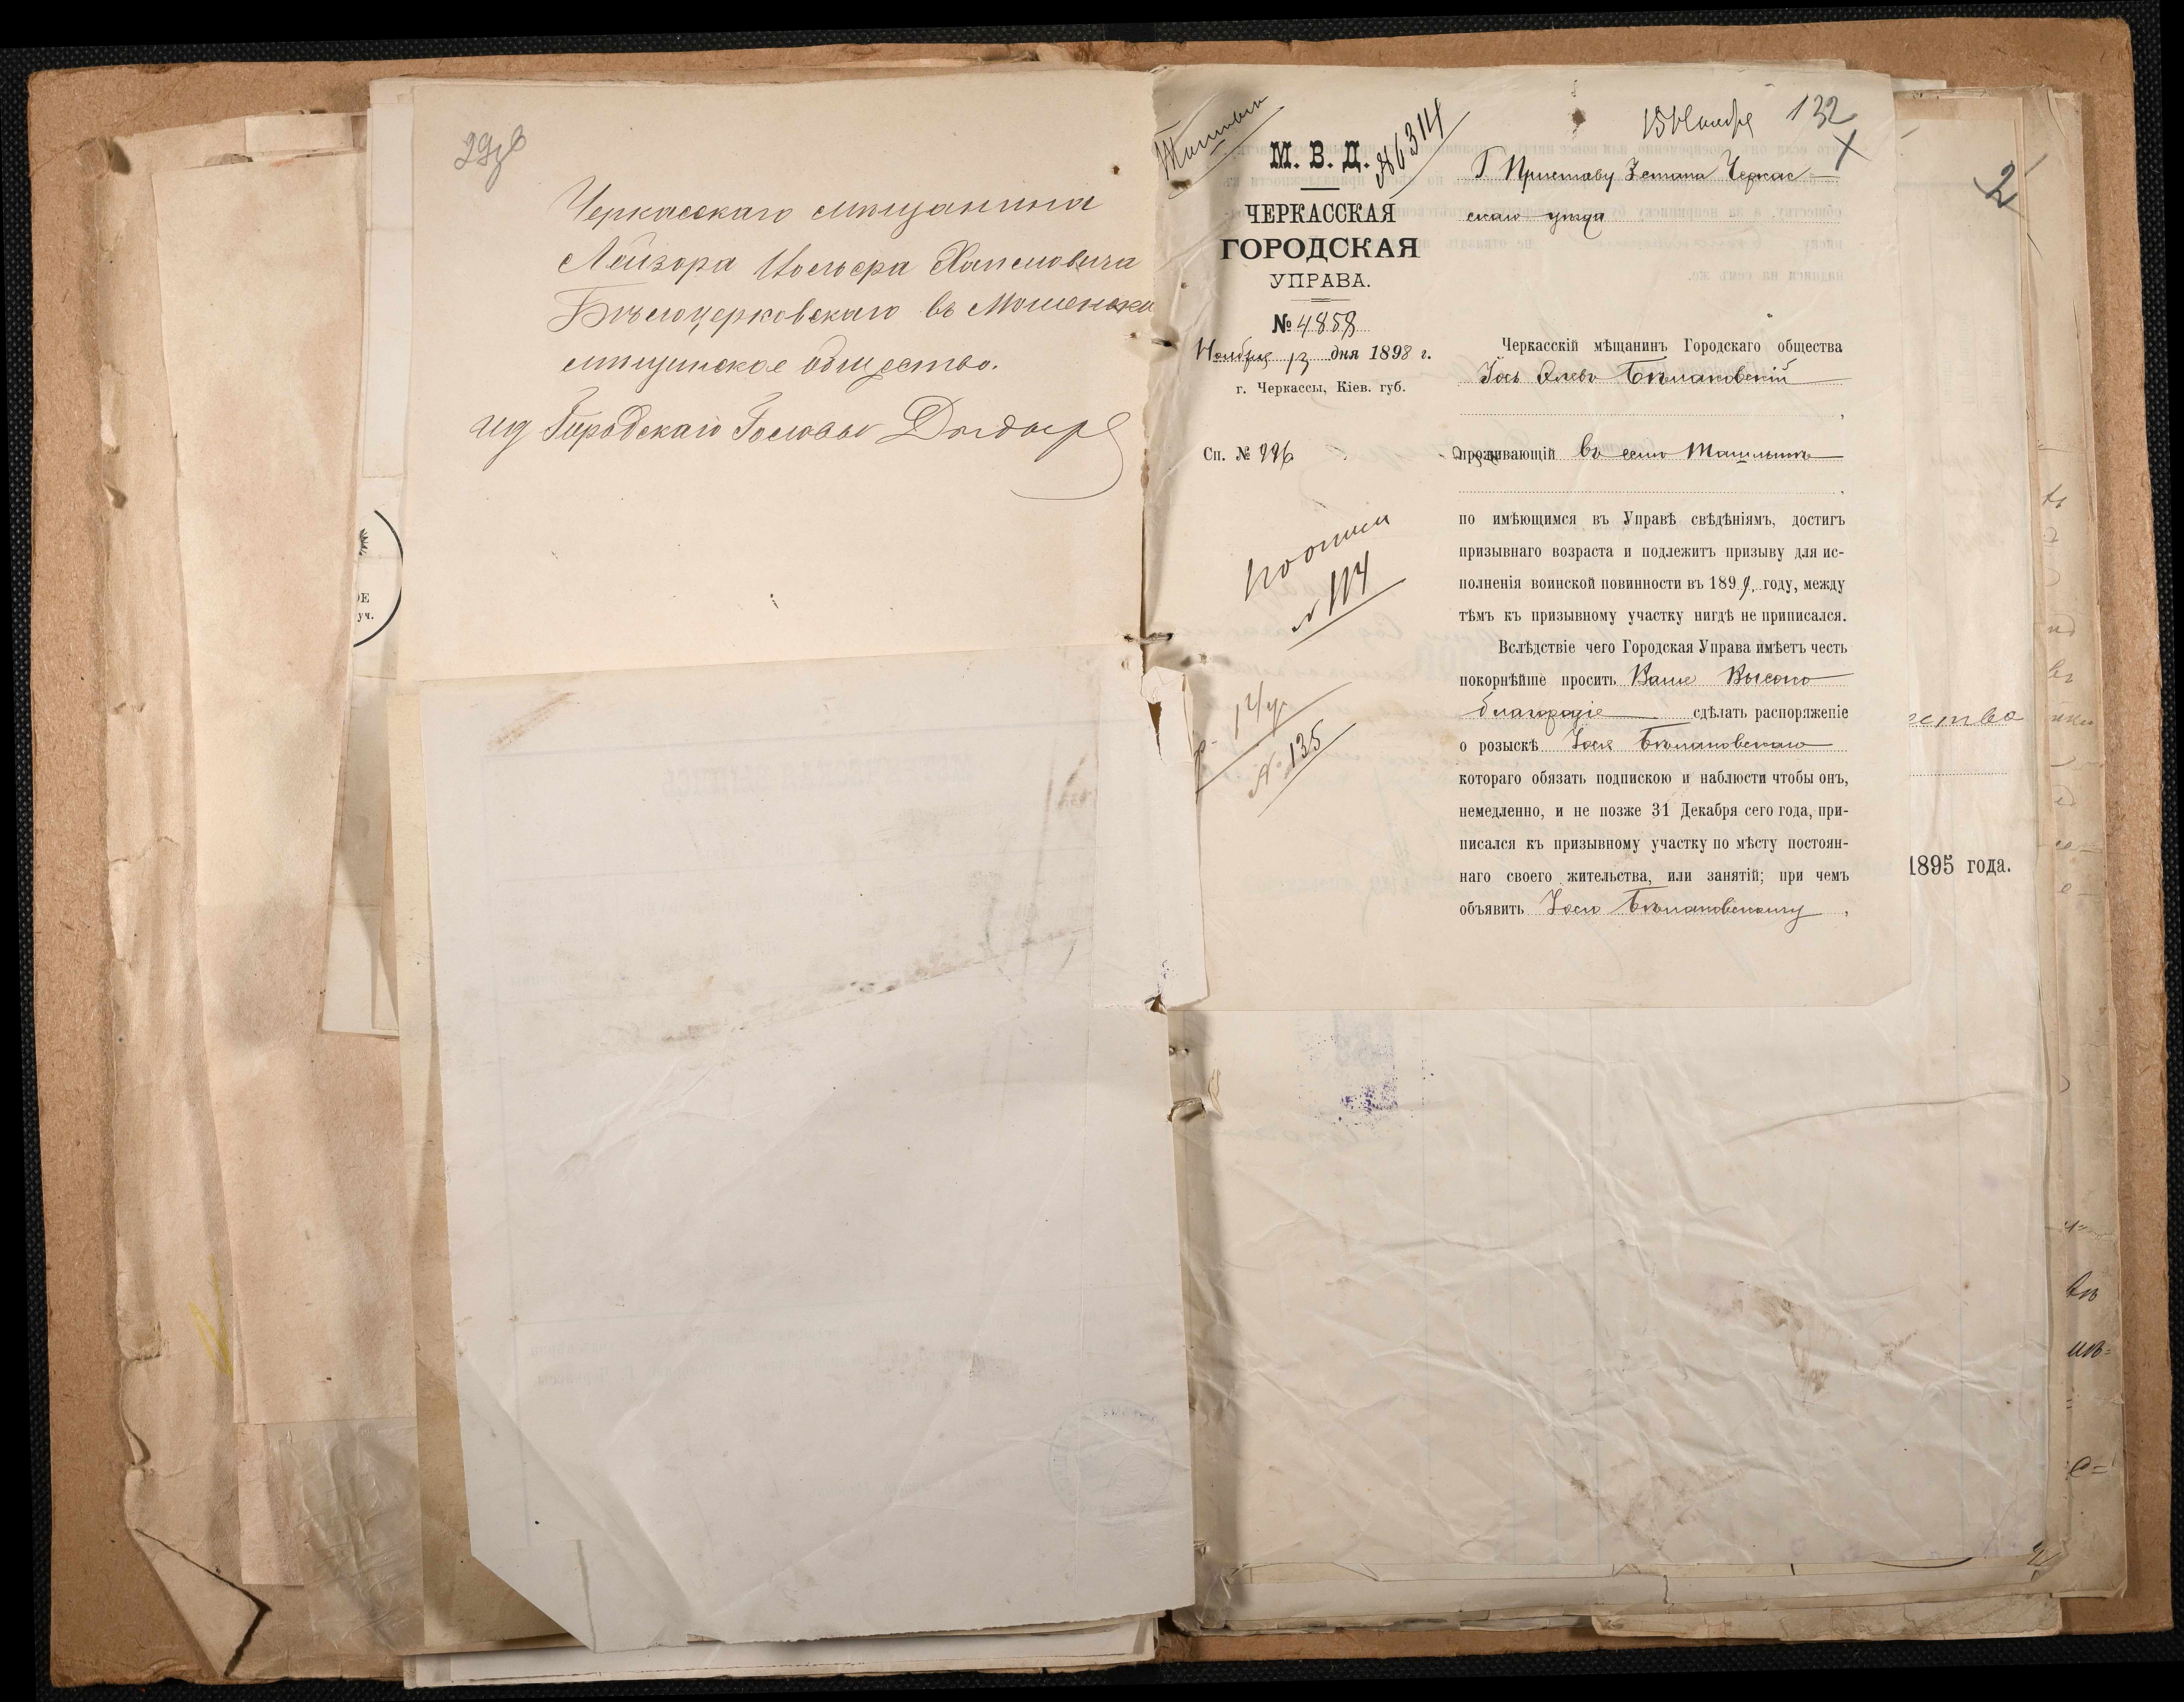 Черкасскаго мѣщанина
Лейзора Иосьефа Хаимовича
Бѣлоцерковскаго въ Мошенско
мѣщанское общество.
ид Городскаго Головы
М. В. Д.
ЧЕРКАССКАЯ
ГОРОДСКАЯ
УПРАВА.
№ 4858
Ноября 13 дня 1898 г.
г. Черкассы, Кіев. губ.
Сп. № 226
№ 6314
№ 114
№ 135
15 Ноября 132
Г. Приставу 3 стана Черкас-
скаго уѣзда
Черкасскій мѣщанинъ Городскаго общества
Іось Бѣлаковскій
проживающій въ селѣ Ташлыкѣ
по имѣющимся въ Управѣ свѣдѣніямъ, достигъ
призывнаго возраста и подлежитъ призыву для ис-
полненія воинской повинности въ 1899. году, между
тѣмъ къ призывному участку нигдѣ не приписался.
Вслѣдствіе чего Городская Управа имѣетъ честь
покорнѣйше просить Ваше Высоко
благородіе сдѣлать распоряженіе
о розыскѣ Іося Бѣлаковскаго
котораго обязать подпискою и наблюсти чтобы онъ,
немедленно, и не позже 31 Декабря сего года, при-
писался къ призывному участку по мѣсту постоян-
наго своего жительства, или занятій; при чемъ
объявить Іосю Бѣлаковскому,
2
ество
1895 года.